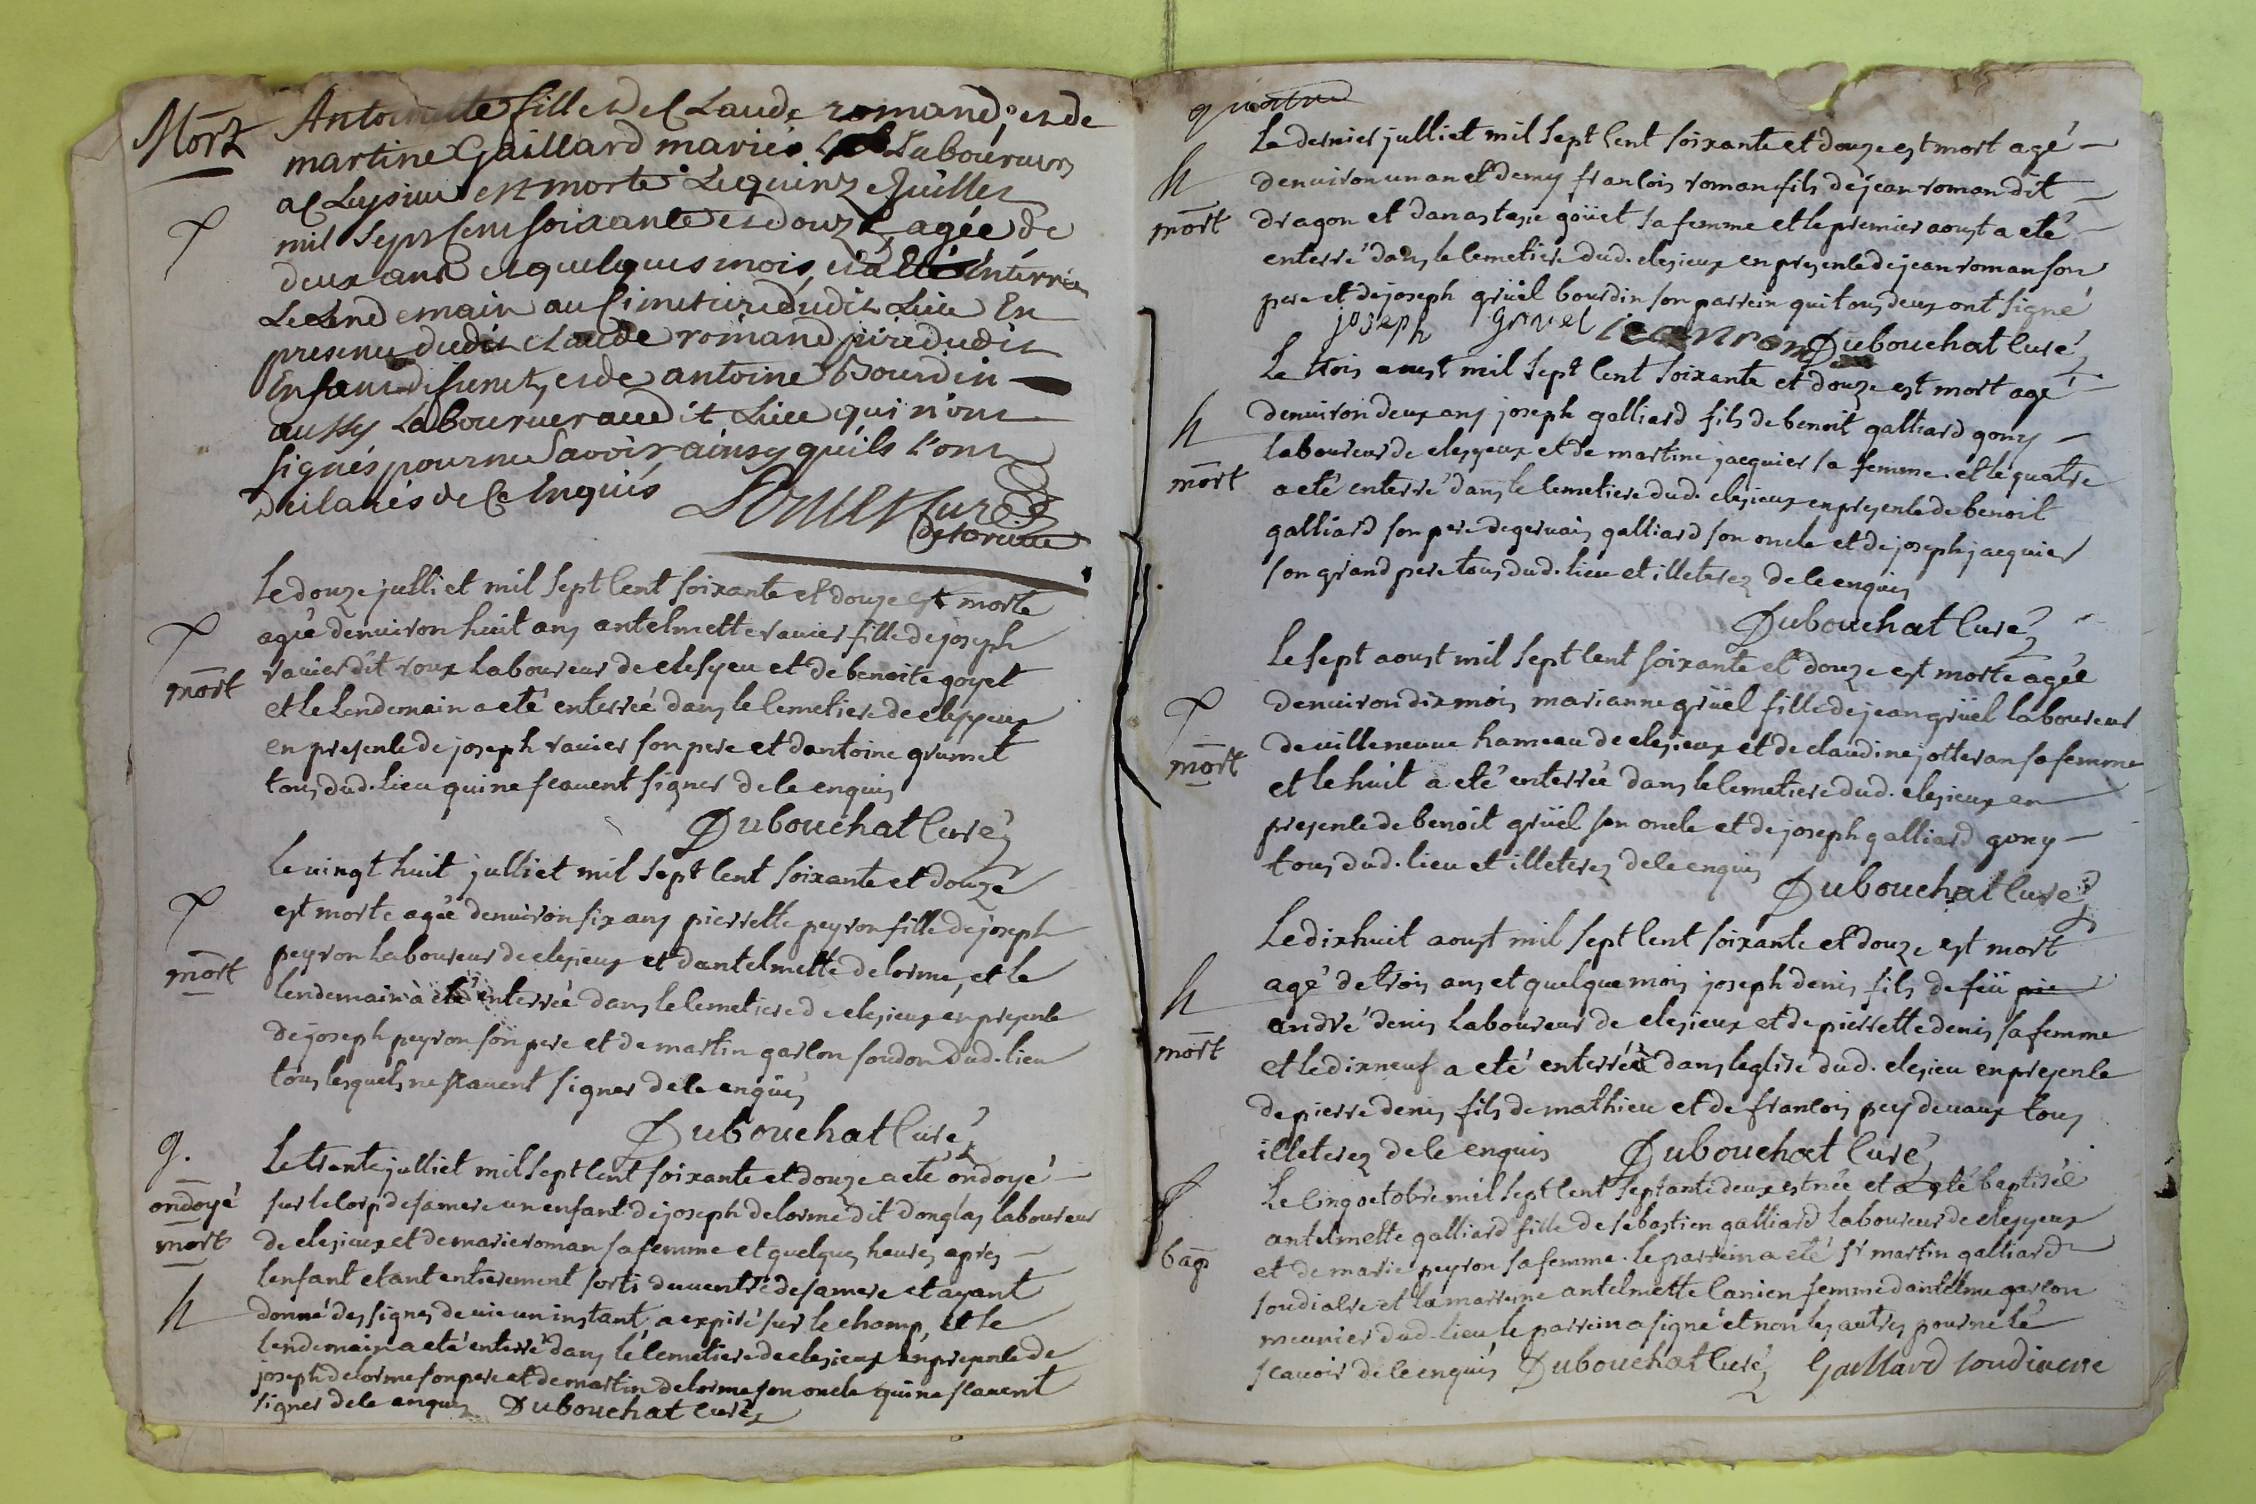 Mort
Antoinette fille de Claude romand et de
martine Gaillard mariés Laboureurs
a Cleysieu est morte Le quinze Juillet
mil Sept Cent soixante et douze agée de
deux ans et quelques mois, et a été Enterrée
Le Lendemain au Cimetiere dudit Lieu En
presence dudit claude romand père dudit
Enfant defunct, et de antoine Bourdin
aussy Laboureur audit Lieu qui n'ont
signés pour ne Savoir ainsy qu'ils l'ont
déclarés de Ce Enquis
Curé
de torcieu
Le douze julliet mil sept cent soixante et douze est morte
agée denuiron huit ans antelmette rauier fille de joseph
mort
rauier dit roux laboureur de clesyeu et de benoite goyet
et le lendemain a eté enterrée dans le cemetiere de clesyeux
en presence de joseph rauier son pere et dantoine grumet
tous dud. lieu qui ne scauent signer de ce enquis
Dubouchat Curé
le uingt huit julliet mil sept cent soixante et douze
est morte agée denuiron six ans pierrette peyron fille de joseph
mort
peyron laboureur de clesieux et dantelmette delorme, et le
lendemain à eté enterrée dans le cemetiere de clesieux en presence
de joseph peyron son pere et de martin garcon soudon dud. lieu
tous lesquels ne scauent signer de ce enquis
Dubouchat Curé
g.
Le trente julliet mil sept cent soixante et douze a eté ondoyé
ondoyé
sur le corp de sa mere un enfant de joseph delorme dit donglas laboureur
mort
de clesieux et de marie roman sa femme et quelques heures apres
lenfant etant entierement sorti du uentre de sa mere et ayant
h
donné des signes de uie un instant, a expiré sur le champ, et le
lendemain a eté enterré dans le cemetiere de clesieux en presence de
joseph delorme son pere et de martin delorme son oncle qui ne scauent
signer de ce enquis Dubouchat curé
quatre
Le dernier julliet mil sept cent soixante et douze est mort agé
h
denuiron un an et demy francois roman fils de jean roman dit
mort
dragon et danastasie goüet sa femme et le premier aoust a eté
enterré dans le cemetiere dud. clesieux en presence de jean roman son
pere et de joseph grüel bourdin son parrein qui tous deux ont signé
joseph gruel jean roman Dubouchat Curé
Le trois aoust mil sept cent soixante et douze est mort agé
h
denuiron deux ans joseph galliard fils de benoit galliard gony
laboureur de clesyeux et de martine jacquier sa femme. et le quatre
mort
a eté enterré dans le cemetiere dud. clesieux en presence de benoit
galliard son pere de geruais galliard son oncle et de joseph jacquier
son grand pere tous dud. lieu et illeterez de ce enquis
Dubouchat Curé
Le sept aoust mil sept cent soixante et douze est morte agée
denuiron dix mois marianne grüel fille de jean grüel laboureur
mort
de uilleneuue hameau de clesieux et de claudine jotteran sa femme
et le huit a eté enterrée dans le cemetiere dud. clesieux en
presence de benoit grüel son oncle et de joseph galliard gony
tous dud. lieu et illeterez de ce enquis
Dubouchat Curé
Le dixhuit aoust mil sept cent soixante et douze est mort
h
agé de trois ans et quelque mois joseph denis fils de feü pie
andré denis laboureur de clesieux et de pierrette denis sa femme
mort
et le dixneuf a eté enterré dans leglise dud. clesieu en presence
de pierre denis fils de mathieu et de francois peydeuaux tous
illeterez de ce enquis Dubouchat Curé
f
Le cinq octobre mil sept cent septante deux est née et a eté baptisée
antelmette galliard fille de sebastien galliard laboureur de clesyeux
bap
et de marie peyron sa femme. le parrein a eté sr martin galliard
soudiacre et la marreine antelmette lanien femme dantelme garcon
meunier dud. lieu le parrein a signé et non les autres pour ne le
scauoir de ce enquis Dubouchat Curé Gaillard soudiacre